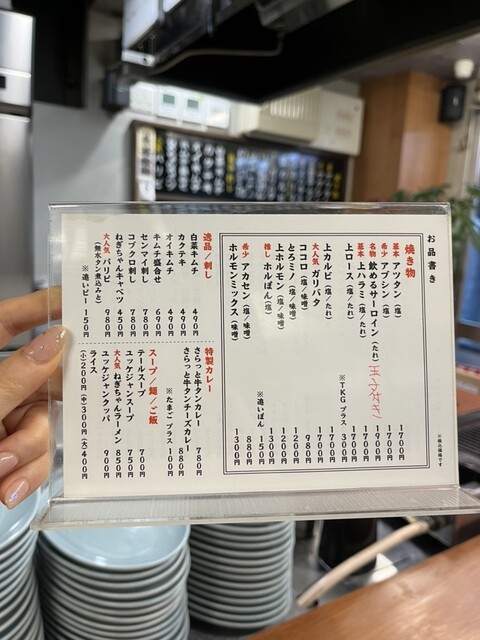 お品書き
焼き物
基本 アツタン（塩） 1700円
希少 アブシン（塩） 1700円
名物 飲めるサーロイン（たれ） 玉子付き 1900円
基本 上ハラミ（塩/たれ） 1700円
上ロース（塩/たれ） 1700円
※TKGプラス 300円
上カルビ（塩/たれ） 1700円
大人気 ガリバタ 980円
ココロ（塩/味噌） 980円
とろミノ（塩/味噌） 1200円
上ホルモン（塩/味噌） 1200円
推し ホルぽん（塩） 1300円
※追いぽん 150円
希少 アカセン（塩/味噌） 880円
ホルモンミックス（味噌） 1300円
※税込価格です
逸品/刺し
白菜キムチ 490円
カクテキ 490円
オイキムチ 490円
キムチ盛合せ 690円
センマイ刺し 780円
コブクロ刺し 780円
ねぎちゃんキャベツ 450円
大人気 バリタン 980円
（無水タン煮込みと）
※追いビー 150円
特製カレー
さらっと牛タンカレー 780円
さらっと牛タンチーズカレー 880円
※たまごプラス 100円
スープ/麺/ご飯
テールスープ 700円
ユッケジャンスープ 750円
大人気 ねぎちゃんラーメン 850円
ユッケジャンクッパ 900円
ライス
（小）200円（中）300円（大）400円